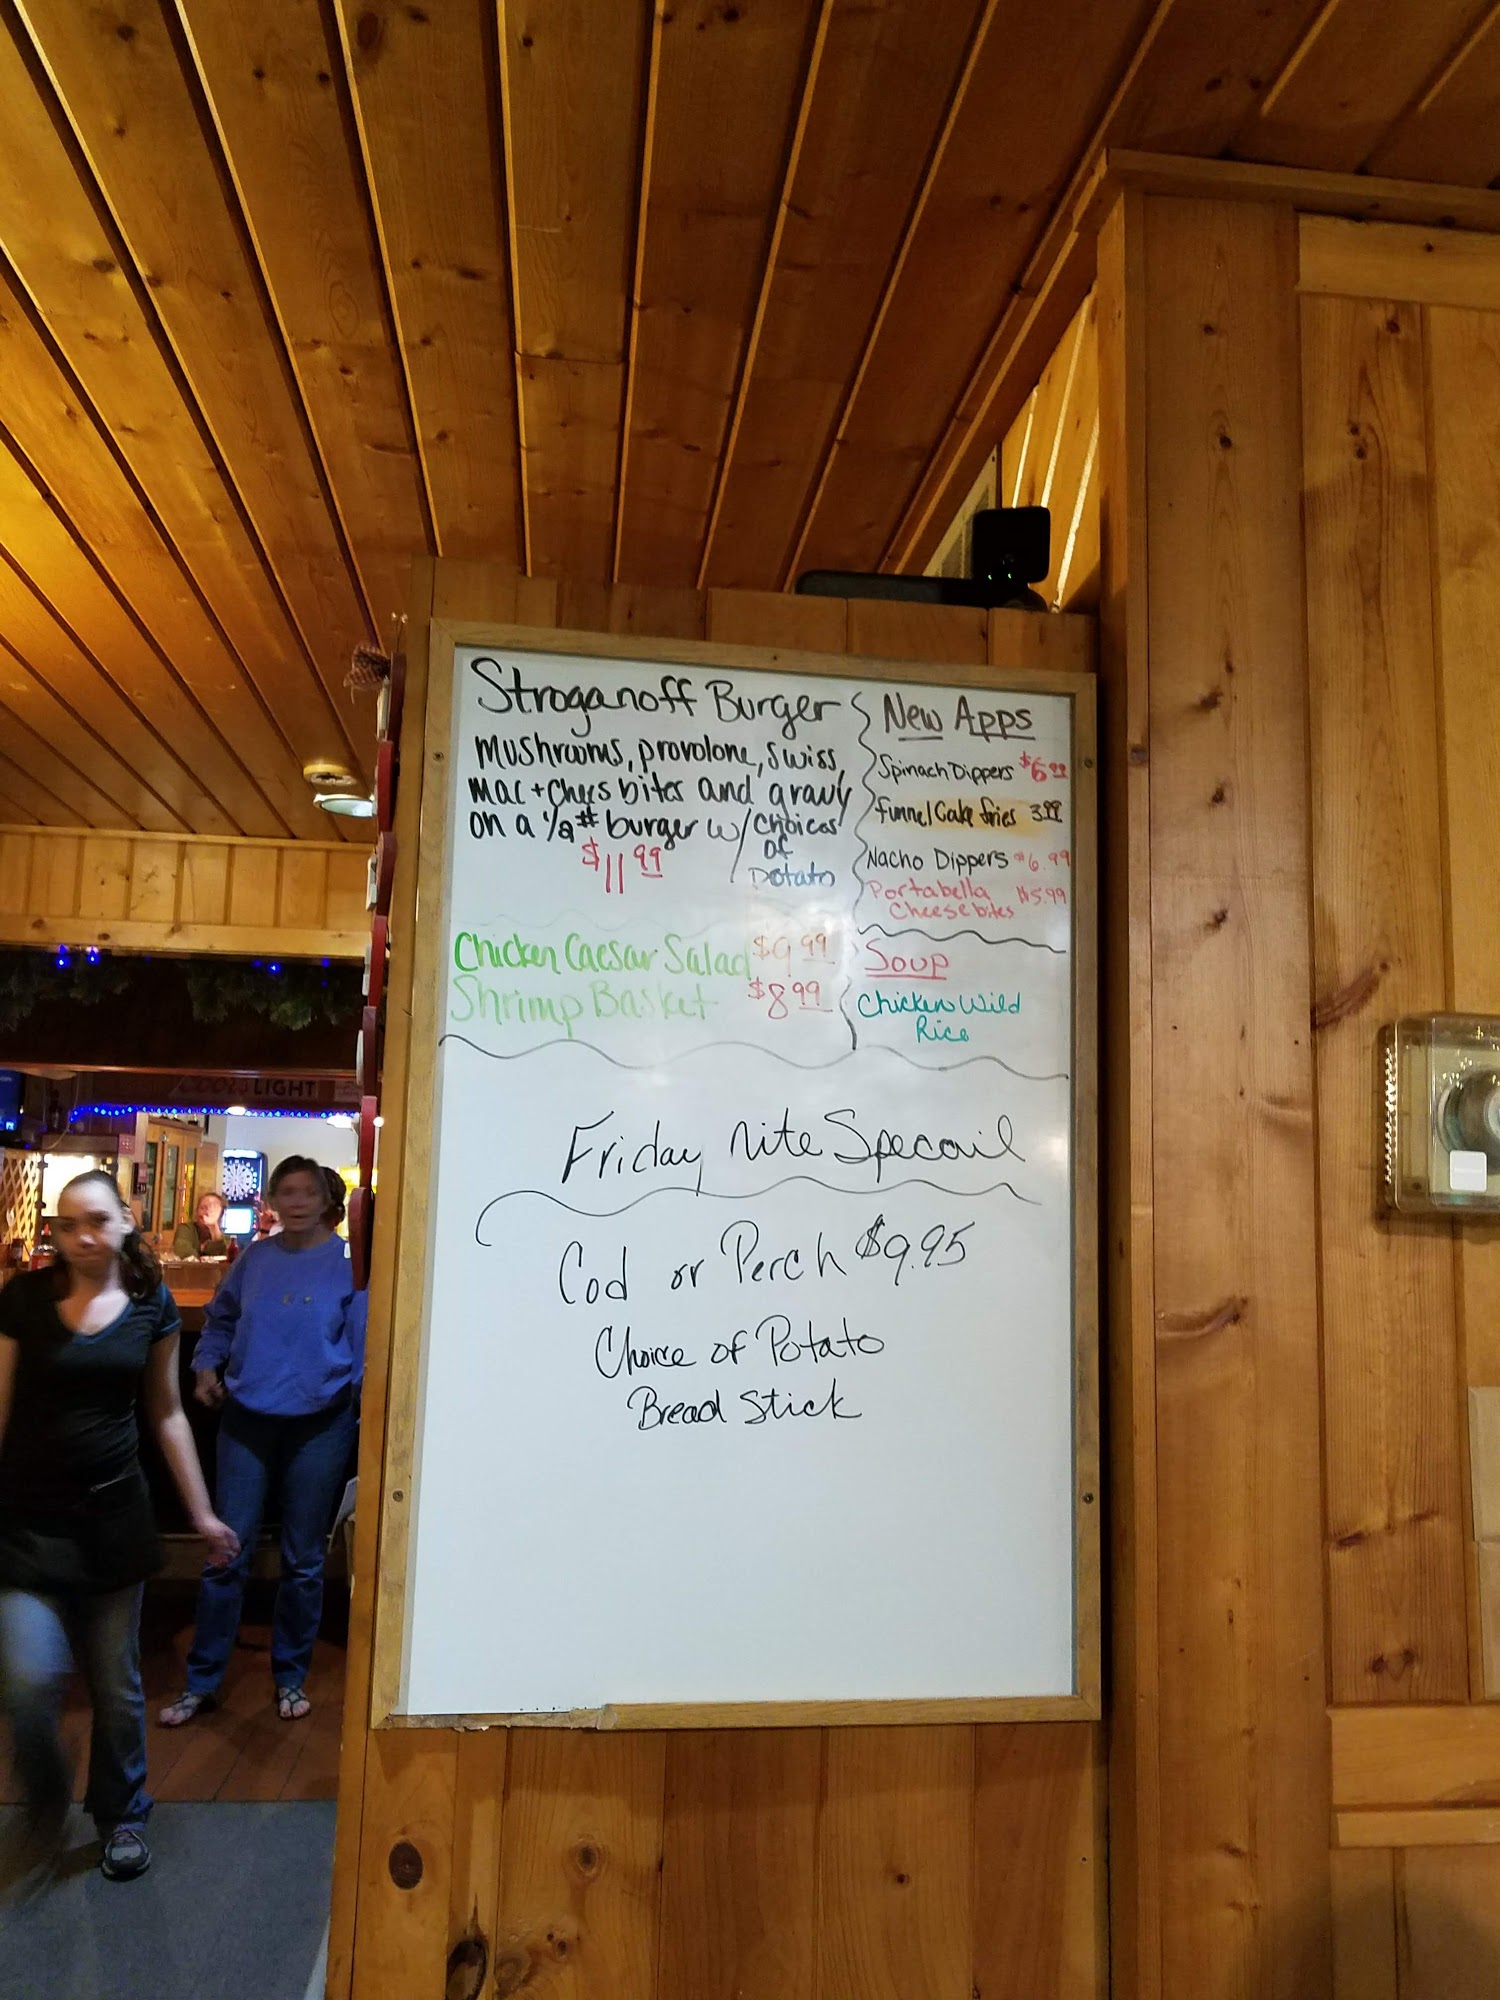 Stroganoff Burger
Mushrooms, provolone, Swiss,
Mac + Chees bites and gravy
on a 1/2# burger w/ choices
of
Potato
$11.99
Chicken Caesar Salad $9.99
Shrimp Basket $8.99
New Apps
Spinach Dippers $6.99
Funnel Cake fries 3.99
Nacho Dippers $6.99
Portabella $5.99
Cheese bites
Soup
Chicken Wild
Rice
Friday Nite Specail
Cod or Perch $9.95
Choice of Potato
Bread Stick
COORS LIGHT